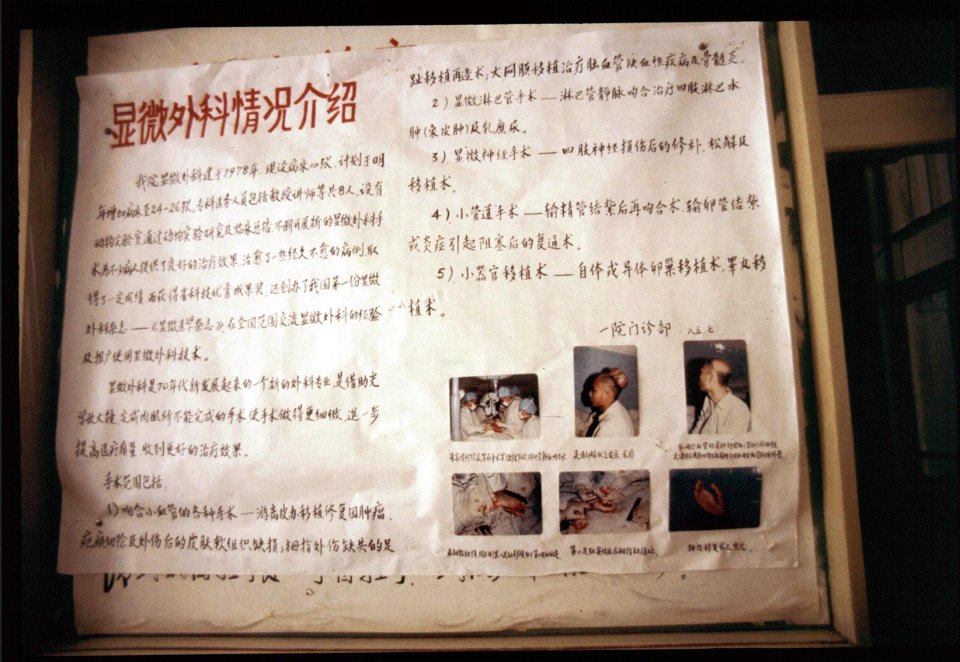 显微外科情况介绍
我院显微外科建于1978年，现设病床10张，计划于明
年增加病床至24-26张。专科医务人员包括教授讲师等共8人，设有
动物实验室通过动物实验研究及临床总结，不断开展新的显微外科手
术为不少病人提供了良好的治疗效果，治愈了一些经久不愈的病例，取
得了一定成绩，而获得省科技优秀成果奖，还创办了我国第一份显微
外科杂志——《显微医学杂志》，在全范围交流显微外科的经验
及推广使用显微外科技术。
显微外科是70年代新发展起来的一个新的外科专业，是借助光
学放大镜，完成肉眼所不能完成的手术，使手术做得更细微，进一步
提高医疗质量，收到更好的治疗效果。
手术范围包括：
1）吻合小血管的各种手术——游离皮瓣移植修复因肿瘤、
疤痕切除及外伤后的皮肤软组织缺损；拇指外伤缺失的足
趾移植再造术；大网膜移植治疗脑血管缺血性疾病及骨髓炎。
2）显微淋巴管手术——淋巴管静脉吻合治疗四肢淋巴水
肿（象皮肿）及乳糜尿。
3）显微神经手术——四肢神经损伤后的修补、松解及
移植术。
4）小管道手术——输精管结紮后再吻合术，输卵管结紮
或炎症引起阻塞后的复通术。
5）小器官移植术——自体或异体卵巢移植术，睾丸移
植术。
一院门诊部 八五.七